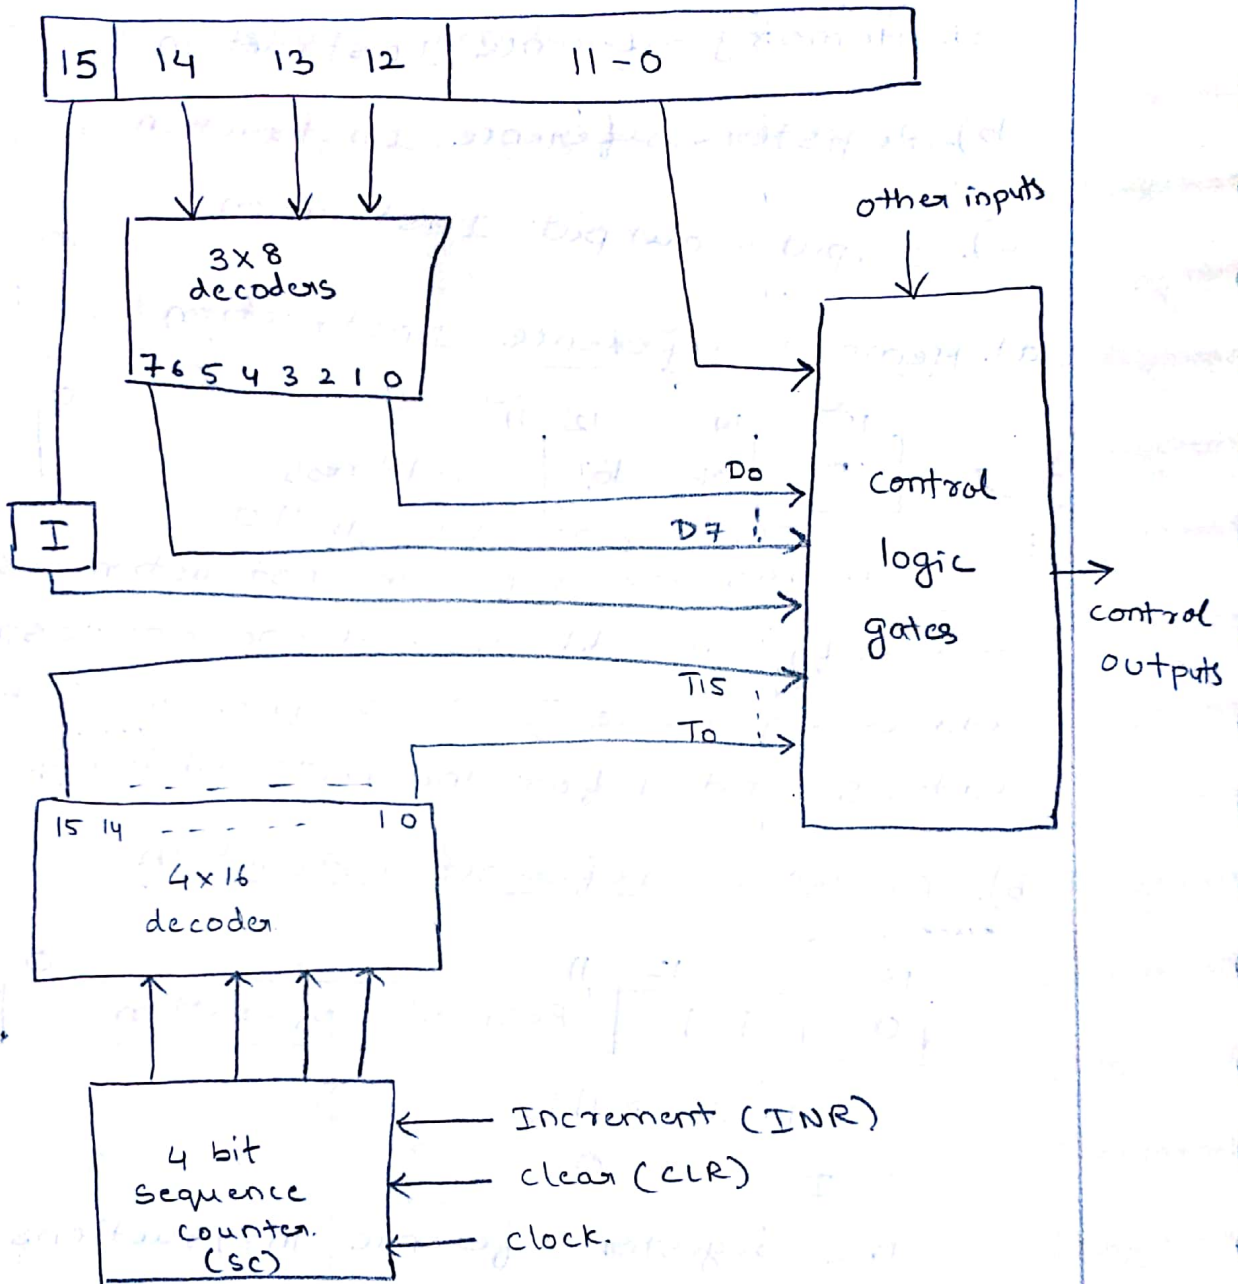 15 14 13 12 11-0
other inputs
3x8
decoders
7 6 5 4 3 2 1 0
D0
D7
I
control
logic
gates
control
outputs
T15
T0
15 14 - - - - - - 1 0
4x16
decoder
4 bit
sequence
counter.
(SC)
Increment (INR)
clear (CLR)
clock.